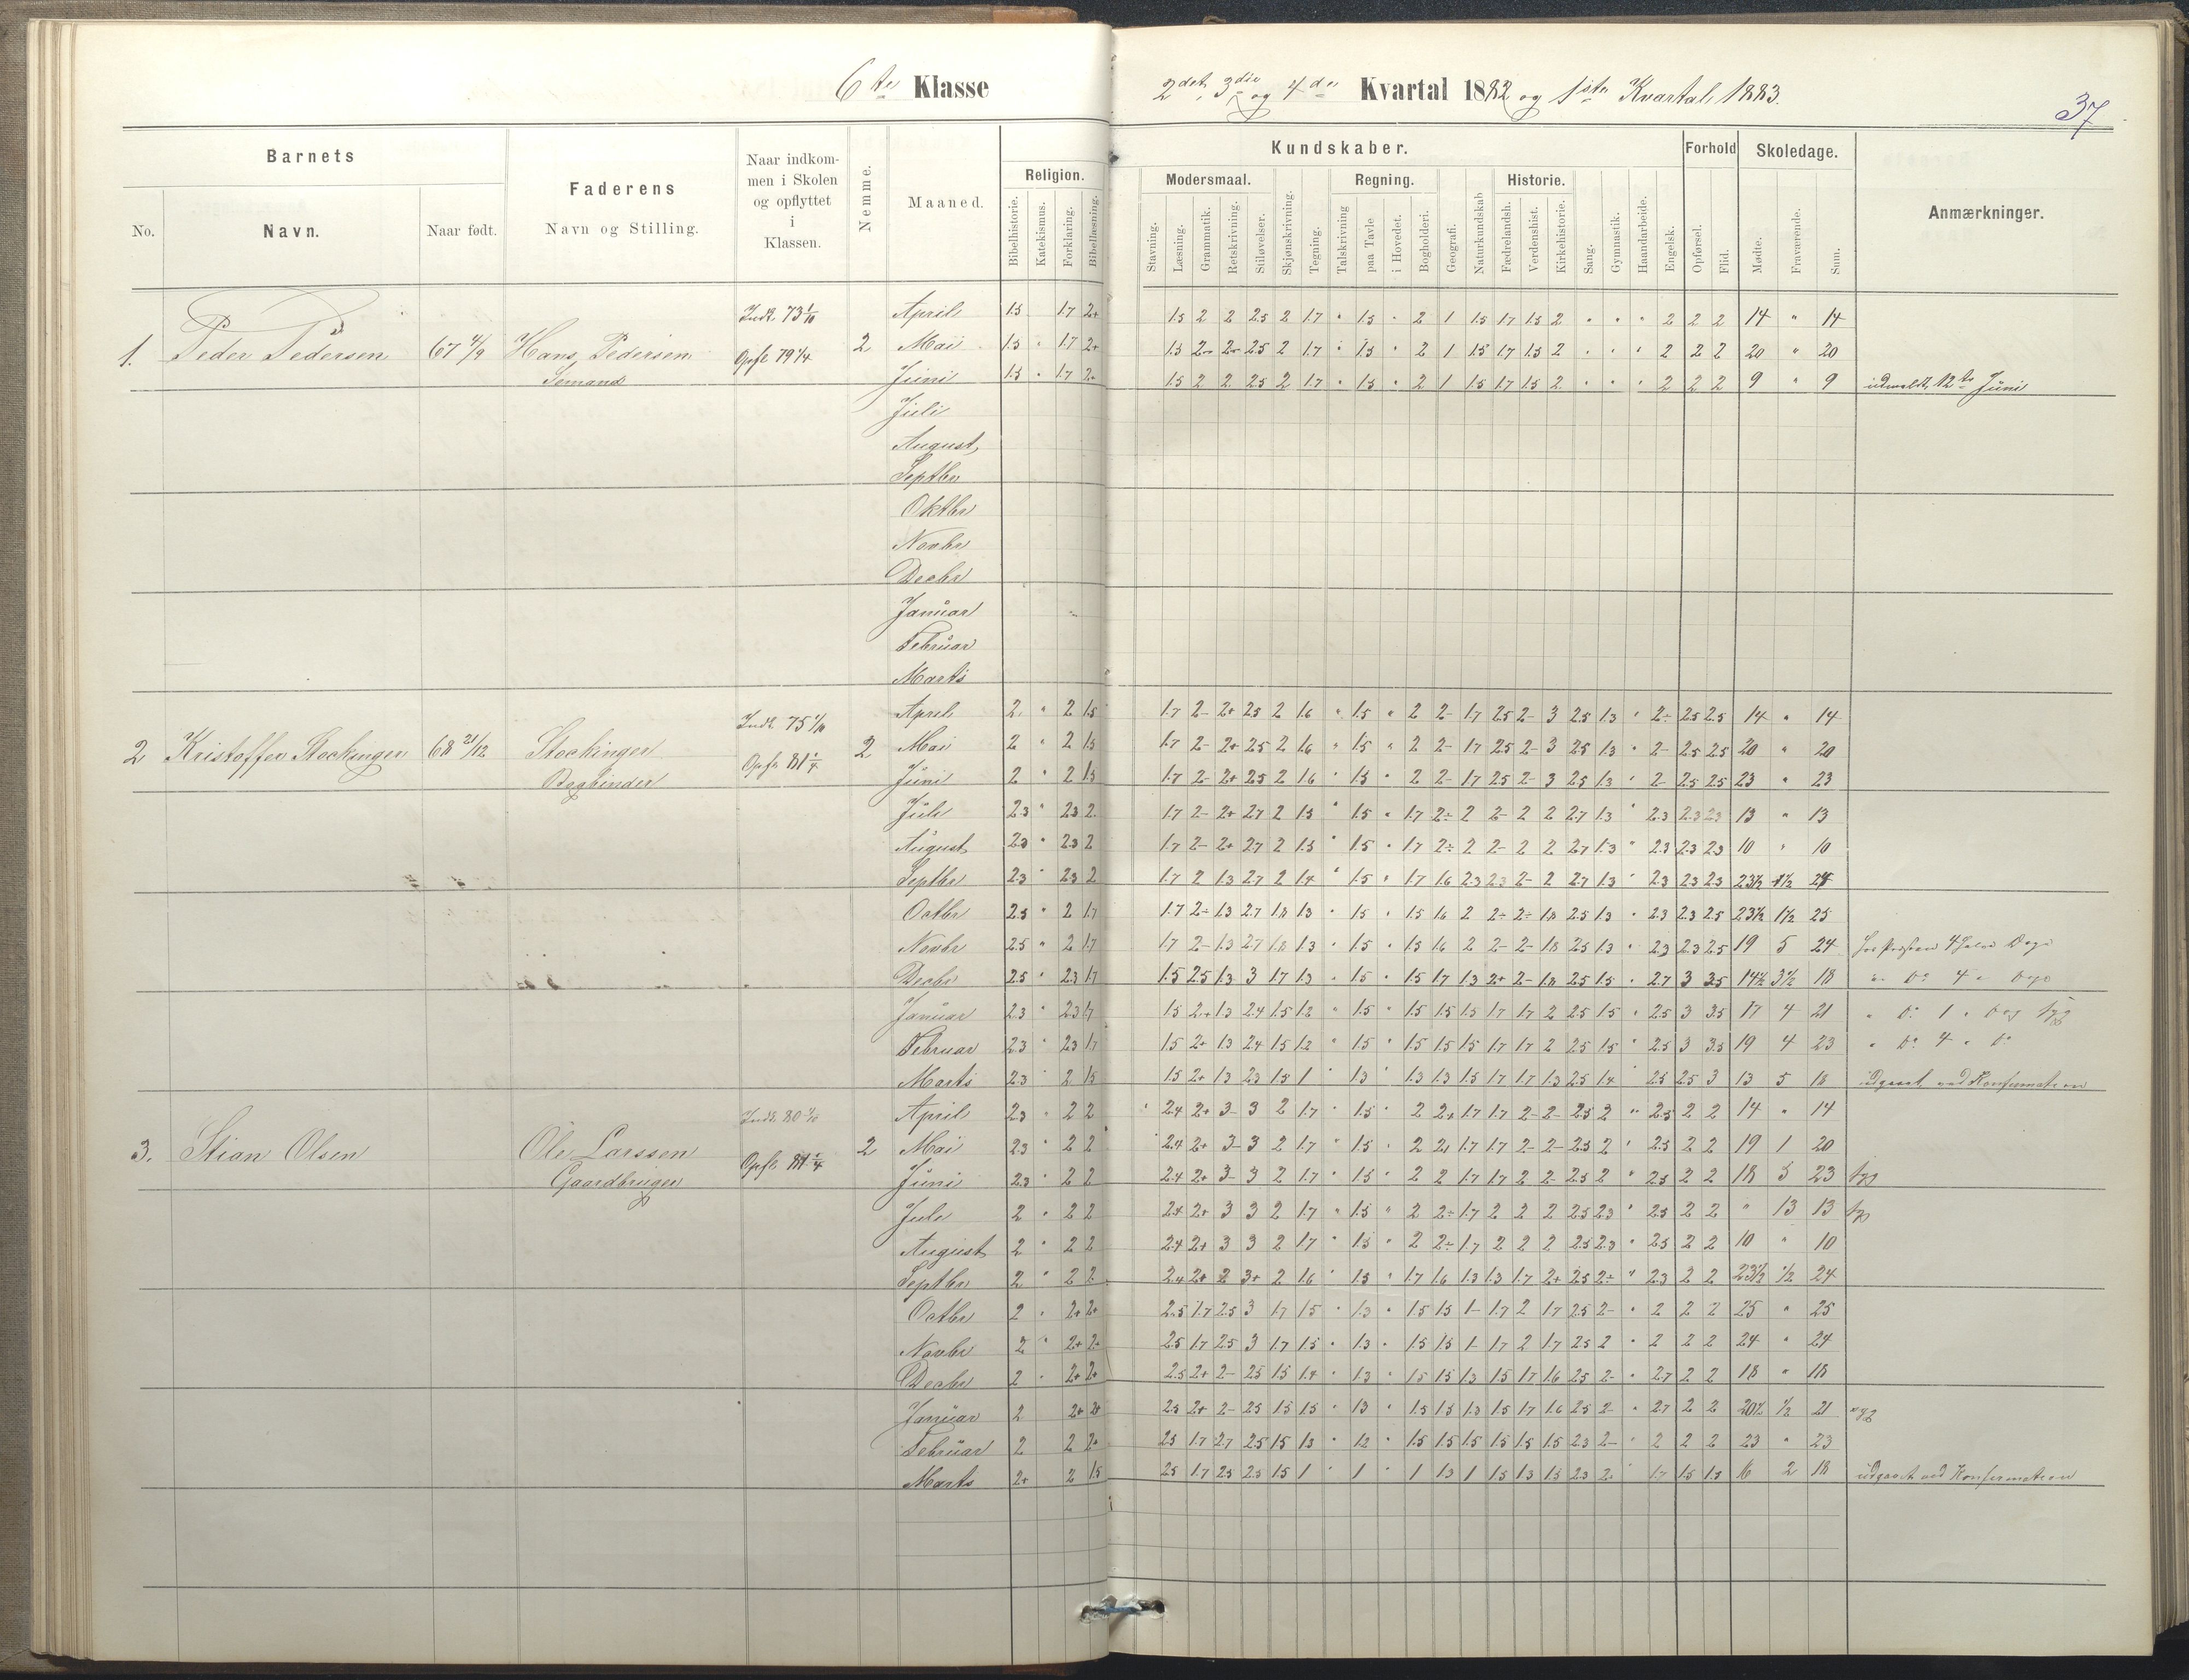 6te Klasse
2det, 3die og 4de Kvartal 1882 og 1ste Kvartal 1883.
37
Barnets
No.
Navn.
Naar født.
Faderens
Navn og Stilling.
Naar indkom-
men i Skolen
og opflyttet
i
Klassen.
Nemme.
Maaned.
Religion.
Bibelhistorie.
Katekismus.
Forklaring.
Bibellæsning.
Kundskaber.
Modersmaal.
Stavning.
Læsning.
Grammatik.
Retskrivning.
Stiløvelser.
Skjønskrivning.
Tegning.
Regning.
Talskrivning
paa Tavle
i Hovedet.
Bogholderi.
Geografi.
Naturkundskab
Historie.
Fædrelandsh.
Verdenshist.
Kirkehistorie.
Sang.
Gymnastik.
Haandarbeide.
Engelsk.
Forhold
Opførsel.
Flid.
Skoledage.
Mødte.
Fraværende.
Sum.
Anmærkninger.
1. Peder Pedersen 67 4/9 Hans Pedersen
Sømand
Indk. 73 1/10
Opfl. 79 1/4
2
April 1.5 1.7 2+ 1.5 2 2 2.5 2 1.7 " 1.5 " 2 1 1.5 1.7 1.5 2 " " " 2 2 2 14 " 14
Mai 1.5 " 1.7 2+ 1.5 2- 2- 2.5 2 1.7 " 1.5 " 2 1 1.5 1.7 1.5 2 " " " 2 2 2 20 " 20
Juni 1.5 " 1.7 2+ 1.5 2 2 2.5 2 1.7 " 1.5 " 2 1 1.5 1.7 1.5 2 " " " 2 2 2 9 " 9 udmeldt 12te Juni
Juli
August
Septbr
Oktbr
Novbr
Decbr
Januar
Februar
Marts
2 Kristoffer Stockinger 68 21/12 Stockinger
Bogbinder
Indk. 75 1/10
Opfl. 81 1/4
2
April 2 " 2 1.5 1.7 2- 2+ 2.5 2 1.6 " 1.5 " 2 2- 1.7 2.5 2- 3 2.5 1.3 " 2- 2.5 2.5 14 " 14
Mai 2 " 2 1.5 1.7 2- 2+ 2.5 2 1.6 " 1.5 " 2 2- 1.7 2.5 2- 3 2.5 1.3 " 2- 2.5 2.5 20 " 20
Juni 2 " 2 1.5 1.7 2- 2+ 2.5 2 1.6 " 1.5 " 2 2- 1.7 2.5 2- 3 2.5 1.3 " 2- 2.5 2.5 23 " 23
Juli 2.3 " 2.3 2 1.7 2- 2+ 2.7 2 1.5 " 1.5 " 1.7 2÷ 2 2- 2 2 2.7 1.3 " 2.3 2.3 2.3 13 " 13
August 2.3 " 2.3 2 1.7 2- 2+ 2.7 2 1.5 " 1.5 " 1.7 2÷ 2 2- 2 2 2.7 1.3 " 2.3 2.3 2.3 10 " 10
Septbr 2.3 " 2.3 2 1.7 2 1.3 2.7 2 1.4 " 1.5 " 1.7 1.6 2.3 2.3 2- 2 2.7 1.3 " 2.3 2.3 2.3 23½ ½ 24
Octbr 2.5 " 2 1.7 1.7 2- 1.3 2.7 1.8 1.3 " 1.5 " 1.5 1.6 2 2÷ 2÷ 1.8 2.5 1.3 " 2.3 2.3 2.5 23½ 1½ 25
Novbr 2.5 " 2 1.7 1.7 2- 1.3 2.7 1.8 1.3 " 1.5 " 1.5 1.6 2 2- 2- 1.8 2.5 1.3 " 2.3 2.3 2.5 19 5 24 hos Præsten 4 halve Dage
Decbr 2.5 " 2.3 1.7 1.5 2.5 1.3 3 1.7 1.3 " 1.5 " 1.5 1.7 1.3 2+ 2- 1.8 2.5 1.5 " 2.7 3 3.5 14½ 3½ 18 " Do 4 " Dage
Januar 2.3 " 2.3 1.7 1.5 2+ 1.3 2.4 1.5 1.2 " 1.5 " 1.5 1.5 1.5 1.7 1.7 2 2.5 1.5 " 2.5 3 3.5 17 4 21 " Do 1 " Dag syg
Februar 2.3 " 2.3 1.7 1.5 2+ 1.3 2.4 1.5 1.2 " 1.5 " 1.5 1.5 1.5 1.7 1.7 2 2.5 1.5 " 2.5 3 3.5 19 4 23 " Do 4 " Do
Marts 2.3 " 2 1.5 1.5 2+ 1.3 2.3 1.5 1 " 1.3 " 1.3 1.3 1.5 1.7 1.7 1.3 2.5 1.4 " 2.5 2.5 3 13 5 18 udgaaet ved Konfirmationen
3. Stian Olsen Ole Larssen
Gaardbruger
Indk. 80 1/10
Opfl. 81 1/4
2
April 2.3 " 2 2 2.4 2+ 3- 3 2 1.7 " 1.5 " 2 2+ 1.7 1.7 2- 2- 2.5 2 " 2.5 2 2 14 " 14
Mai 2.3 " 2 2 2.4 2+ 3- 3 2 1.7 " 1.5 " 2 2+ 1.7 1.7 2- 2- 2.5 2 " 2.5 2 2 19 1 20
Juni 2.3 " 2 2 2.4 2+ 3- 3 2 1.7 " 1.5 " 2 2 1.7 1.7 2 2- 2.5 2 " 2.5 2 2 18 5 23 syg
Juli 2 " 2 2 2.4 2+ 3 3 2 1.7 " 1.5 " 2 2÷ 1.7 2 2 2 2.5 2.3 " 2.5 2 2 " 13 13
August 2 " 2 2 2.4 2+ 3 3 2 1.7 " 1.5 " 2 2÷ 1.7 2 2 2 2.5 2.3 " 2.5 2 2 10 " 10
Septbr 2 " 2 2 2.4 2+ 2 3+ 2 1.6 " 1.5 " 1.7 1.6 1.3 1.3 1.7 2+ 2.5 2÷ " 2.3 2 2 23½ ½ 24
Octbr 2 " 2+ 2+ 2.5 1.7 2.5 3 1.7 1.5 " 1.3 " 1.5 1.5 1- 1.7 2 1.7 2.5 2- " 2 2 2 25 " 25
Novbr 2 " 2+ 2+ 2.5 1.7 2.5 3 1.7 1.5 " 1.3 " 1.5 1.5 1- 1.7 2 1.7 2.5 2 " 2 2 2 24 " 24
Decbr 2 " 2+ 2+ 2.5 2+ 2- 2.5 1.5 1.4 " 1.3 " 1.5 1.5 1.3 1.5 1.7 1.6 2.5 2- " 2.7 2 2 18 " 18
Januar 2 2+ 2+ 2.5 2+ 2- 2.5 1.5 1.5 " 1.3 " 1.5 1.5 1.3 1.5 1.7 1.6 2.5 2- " 2.7 2 2 20½ ½ 21 syg
Februar 2 2 2+ 2.5 1.7 2.7 2.5 1.5 1.3 " 1.2 " 1.5 1.5 1.5 1.5 1.5 1.5 2.3 2- " 2 2 2 23 " 23
Marts 2+ 2 1.5 2.5 1.7 2.5 2.5 1.5 1 " 1 " 1 1.3 1 1.5 1.3 1.5 2.3 2- " 1.7 1.5 1.5 16 2 18 udgaaet ved Konfirmationen